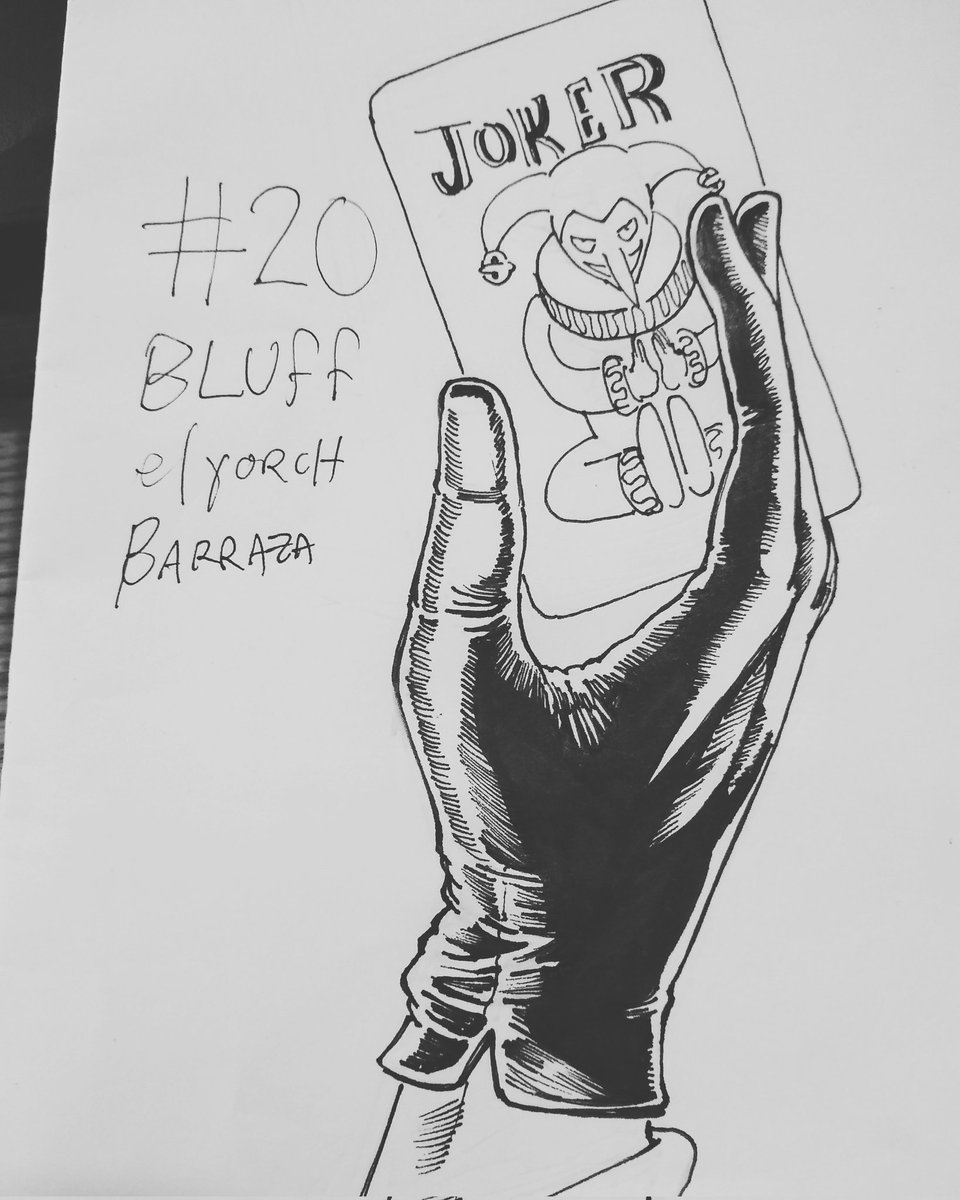 JOKER
#20
BLUff
elyorcH
BARRAZA